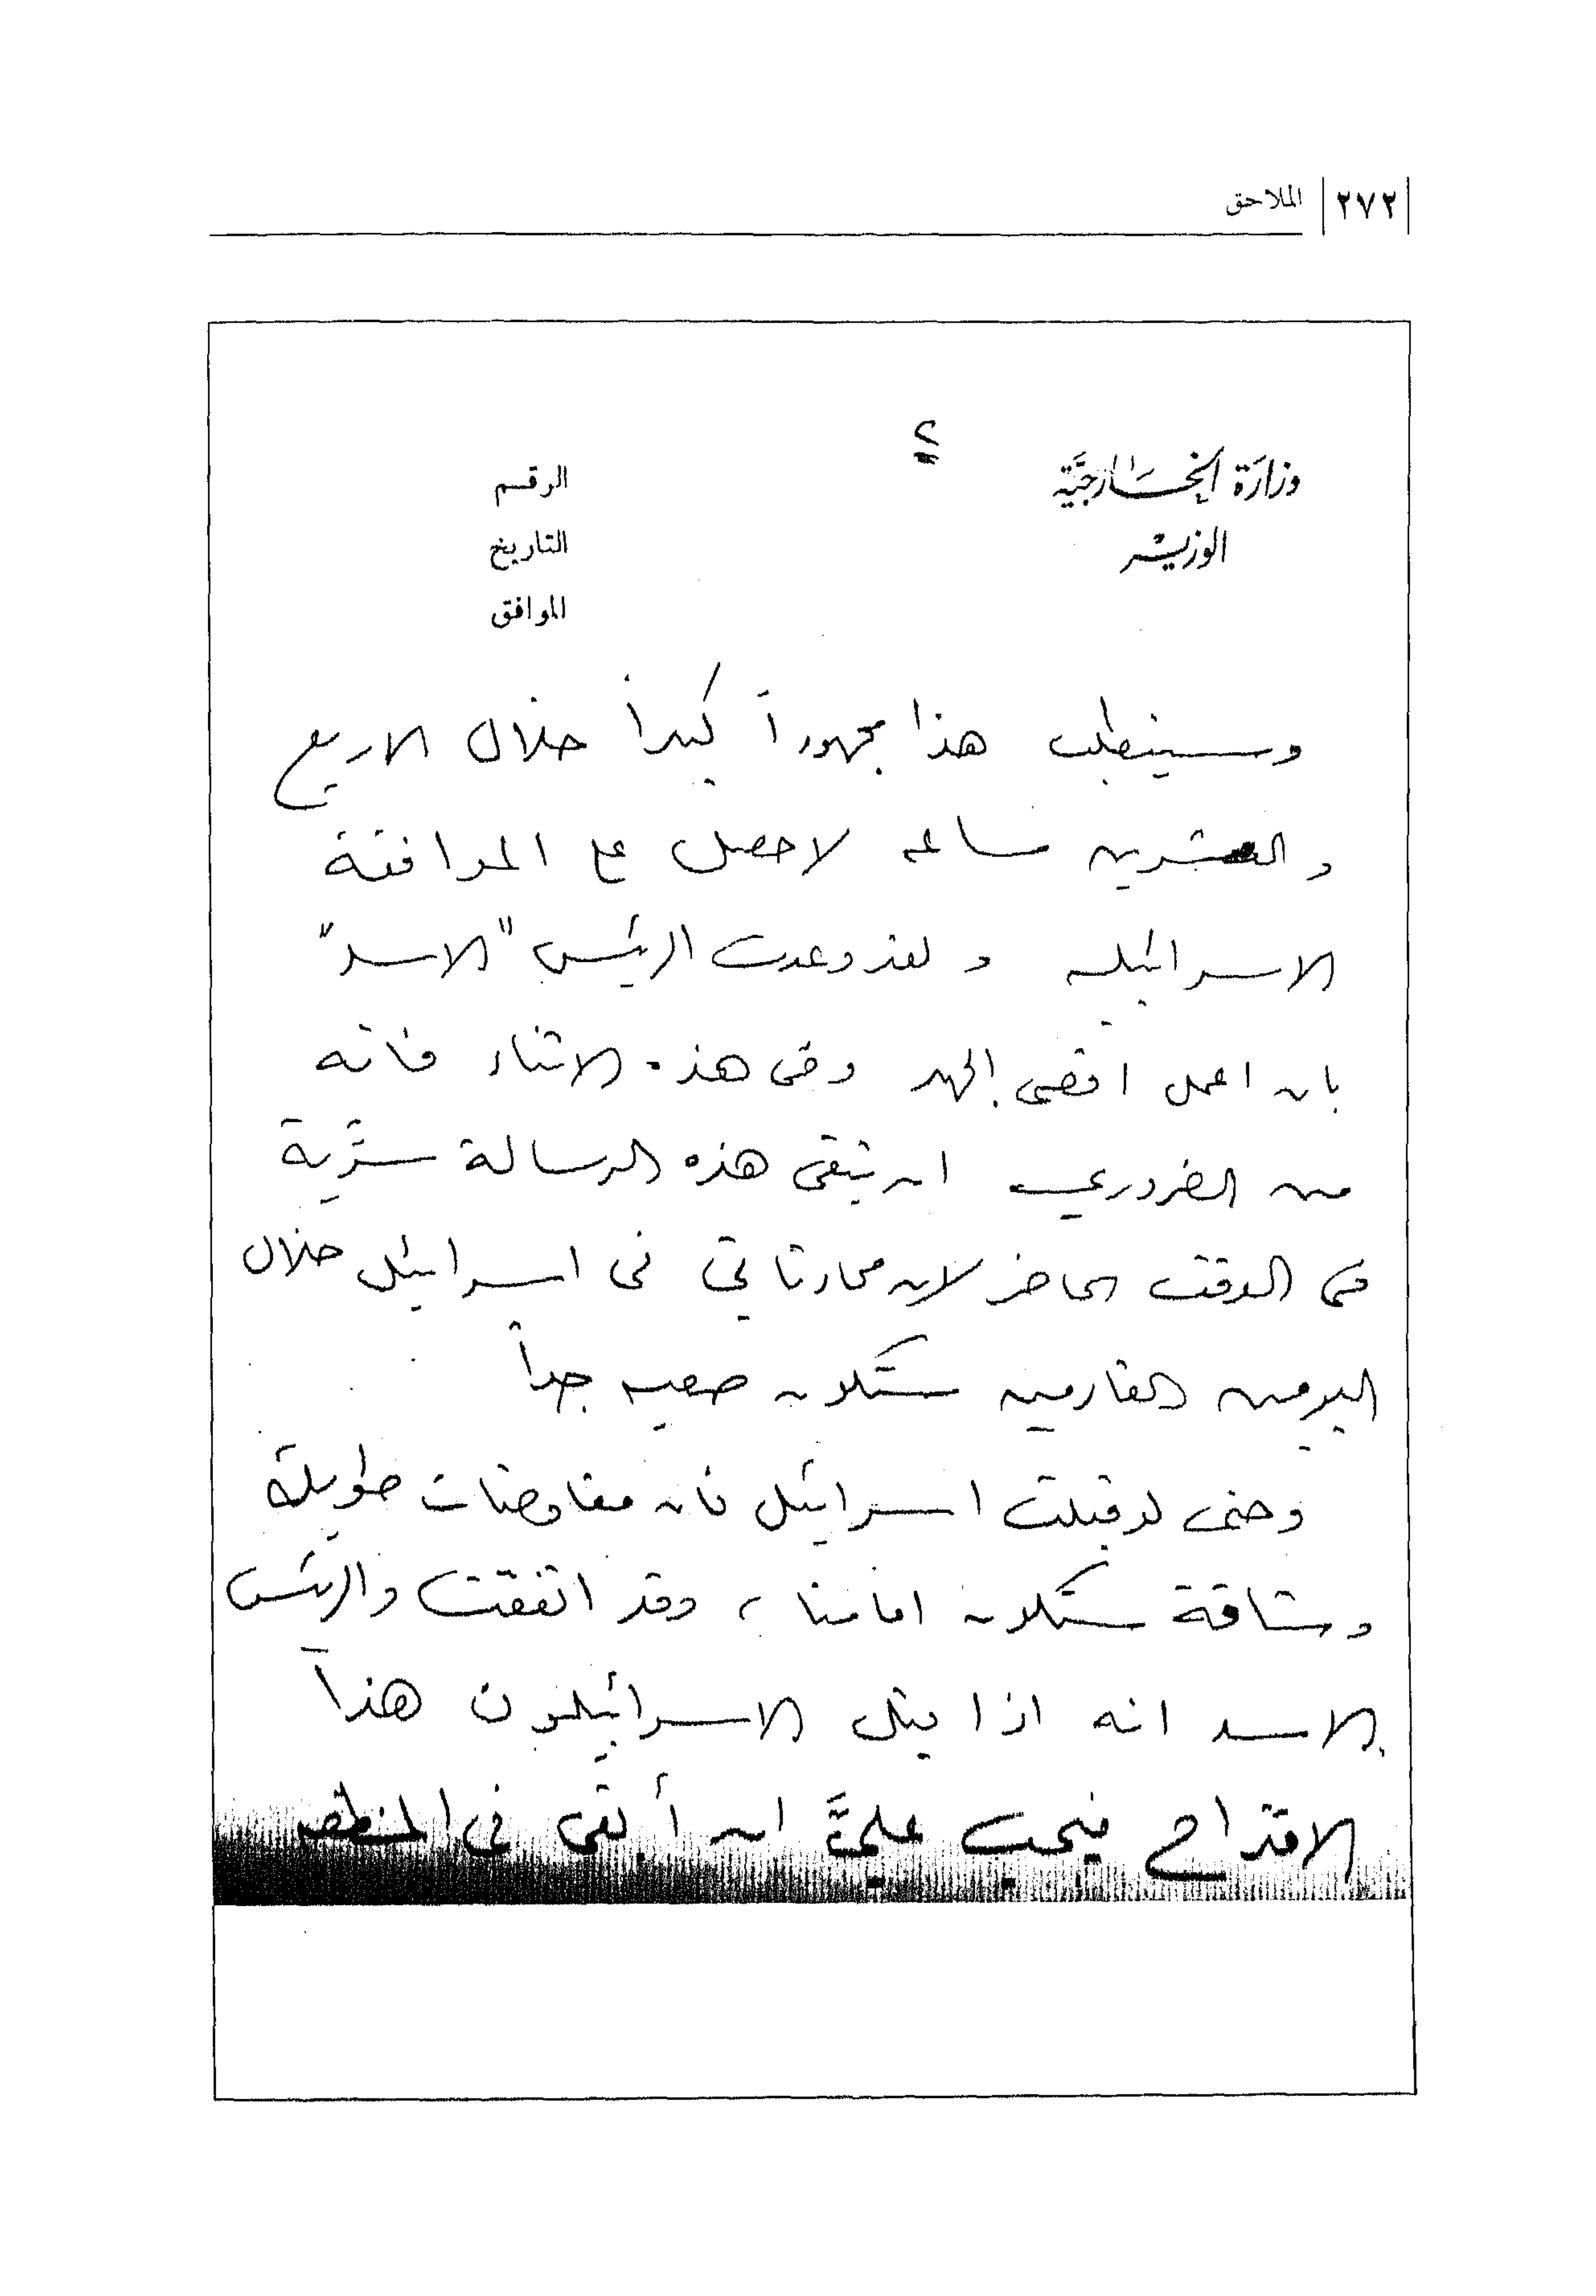 ٢٧٢ الملاحق
٢
وزارة الخارجية
الوزير
الرقم
التاريخ
الموافق
وسيتطلب هذا مجهوداً كبيراً خلال الاربع
والعشرين ساعه لاحصل على الموافقة
الاسرائيليه ولقد وعدت الرئيس "الاسد"
بان اعمل اقصى الجهد وفى هذه الاثناء فانه
من الضروري ان تبقى هذه الرسالة سرّية
فى الوقت الحاضر لان محادثاتي فى اسرائيل خلال
اليومين القادمين ستكون صعبه جداً
وحتى لو قبلت اسرائيل فان مفاوضات طويلة
وشاقة ستكون امامنا، وقد اتفقت والرئيس
الاسد انه اذا قبل الاسرائيليون هذا
الاقتراح فيجب عليَّ ان أبقى فى المنطقه